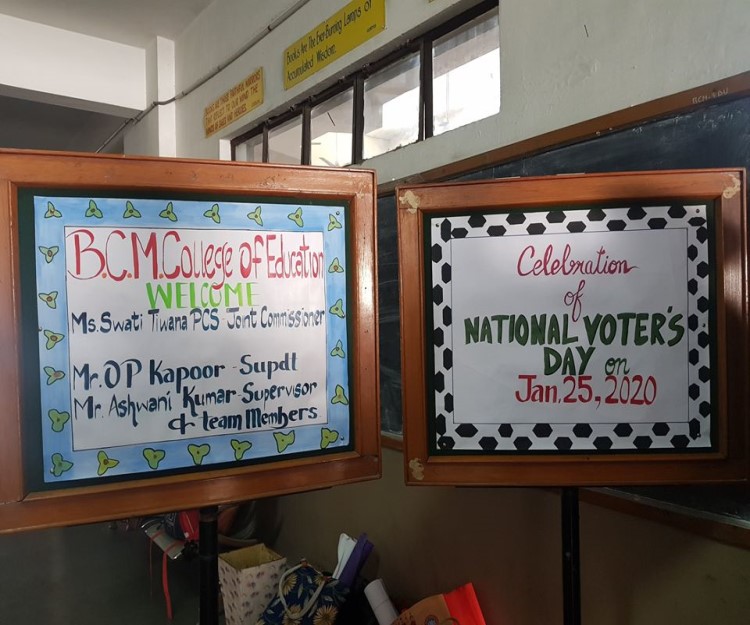 Books Are The Ever-Burning Lamps of
Accumulated Wisdom.
B.C.M. College Of Education
WELCOME
Ms. Swati Tiwana PCS Joint Commissioner
Mr. OP Kapoor - Supdt
Mr. Ashwani Kumar - Supervisor
& team Members
Celebration
of
NATIONAL VOTER'S
DAY on
Jan. 25, 2020